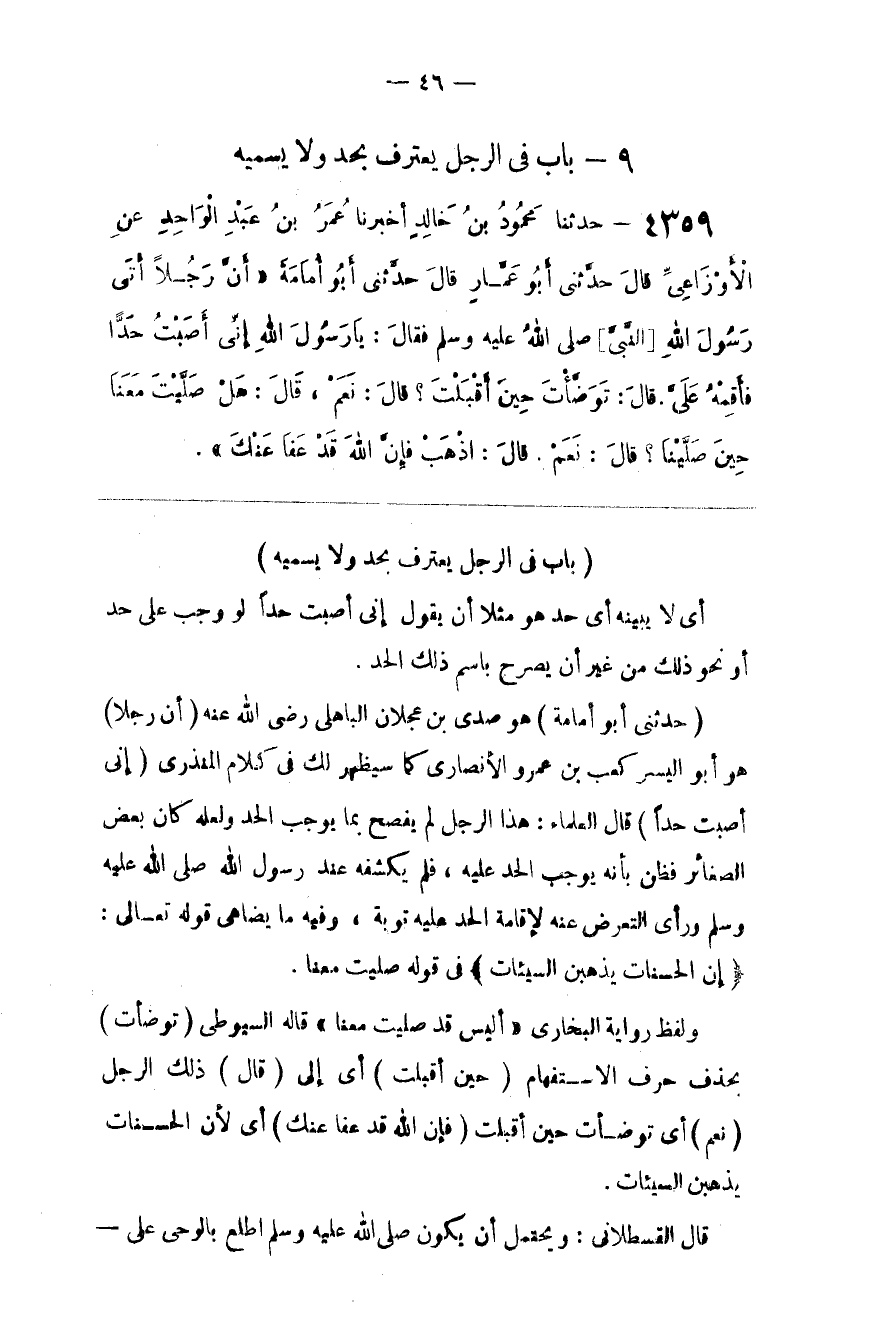 — ٤٦ —
٩ — باب فى الرجل يعترف بحد ولا يسميه
٤٣٥٩ — حدثنا مَحمُودُ بنُ خَالِدٍ أخبرنا عُمَرُ بنُ عَبْدِ الْوَاحِدِ عنِ
الْأَوْزَاعِىِّ قالَ حدَّثنى أَبُو عَمَّـارٍ قالَ حدَّثنى أَبُو أُمامَةَ « أنَّ رَجُـلاً أتَى
رَسُولَ اللهِ [النَّبِىَّ] صلى اللهُ عليه وسلم فقالَ : يارَسُولَ اللهِ إنِّى أَصَبْتُ حَدًّا
فأَقِمْهُ عَلَىَّ . قالَ : تَوَضَّأْتَ حِينَ أَقْبَلْتَ ؟ قالَ : نَعَمْ ، قَالَ : هَلْ صَلَّيْتَ مَعَنَا
حِينَ صَلَّيْنَا ؟ قالَ : نَعَمْ . قالَ : اذْهَبْ فإِنَّ اللهَ قَدْ عَفا عَنْكَ » .
( باب فى الرجل يعترف بحد ولا يسميه )
أى لا يبينه أى حد هو مثلا أن يقول إنى أصبت حداً لو وجب على حد
أو نحو ذلك من غير أن يصرح باسم ذلك الحد .
( حدثنى أبو أمامة ) هو صدى بن عجلان الباهلى رضى الله عنه ( أن رجلا )
هو أبو اليسر كعب بن عمرو الأنصارى كما سيظهر لك فى كلام المنذرى ( إنى
أصبت حداً ) قال العلماء : هذا الرجل لم يفصح بما يوجب الحد ولعله كان بعض
الصغائر فظن بأنه يوجب الحد عليه ، فلم يكشفه عند رسول الله صلى الله عليه
وسلم ورأى التعرض عنه لإقامة الحد عليه توبة ، وفيه ما يضاهى قوله تعـالى :
﴿ إن الحسنات يذهبن السيئات ﴾ فى قوله صليت معنا .
ولفظ رواية البخارى « أليس قد صليت معنا » قاله السيوطى ( توضأت )
بحذف حرف الاســتفهام ( حين أقبلت ) أى إلى ( قال ) ذلك الرجل
( نعم ) أى توضـأت حين أقبلت ( فإن الله قد عفا عنك ) أى لأن الحســنات
يذهبن السيئات .
قال القسطلانى : ويحتمل أن يكون صلى الله عليه وسلم اطلع بالوحى على —